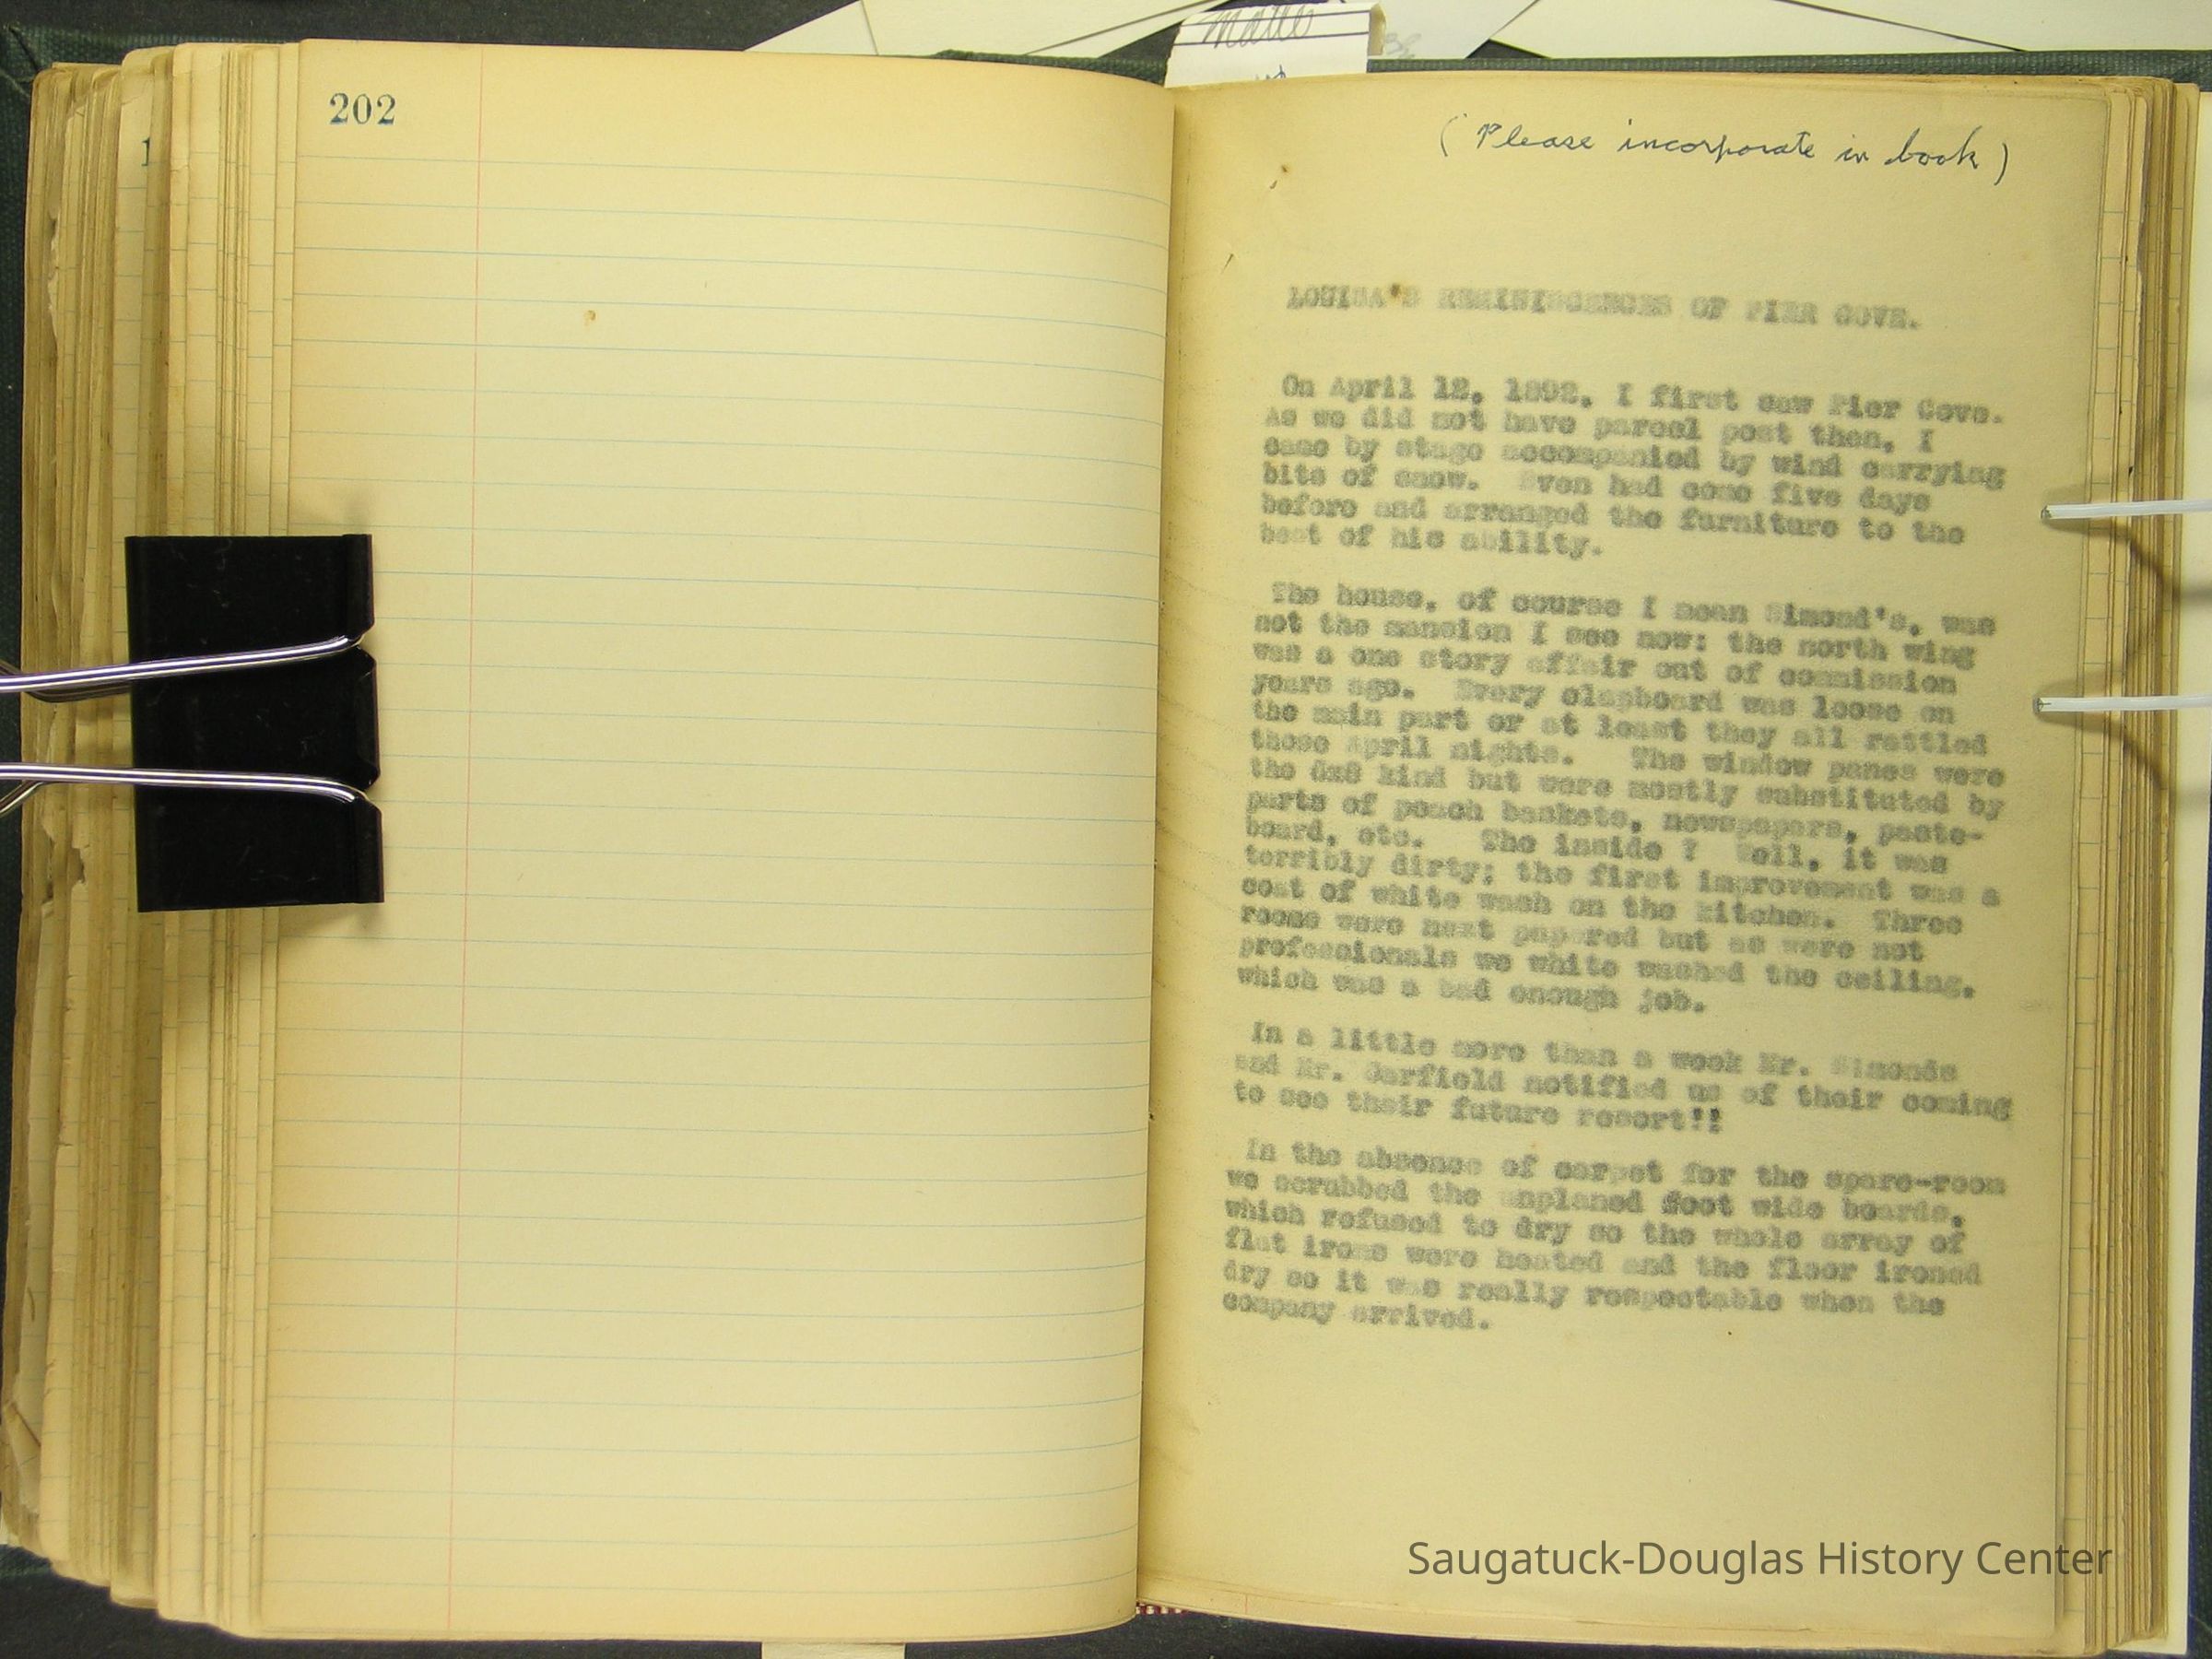 202
(Please incorporate in book)
LOUISA'S REMINISCENCES OF PIER COVE.
On April 12, 1892, I first saw Pier Cove.
As we did not have parcel post then, I
came by stage accompanied by wind carrying
bits of snow. Sven had come five days
before and arranged the furniture to the
best of his ability.
The house, of course I mean Simond's, was
not the mansion I see now: the north wing
was a one story affair out of commission
years ago. Every clapboard was loose on
the main part or at least they all rattled
those April nights. The window panes were
the 6x8 kind but were mostly substituted by
parts of peach baskets, newspapers, paste-
board, etc. The inside ? Well, it was
terribly dirty; the first improvement was a
coat of white wash on the kitchen. Three
rooms were next papered but as were not
professionals we white washed the ceiling,
which was a bad enough job.
In a little more than a week Mr. Simonds
and Mr. Garfield notified us of their coming
to see their future resort!!
In the absence of carpet for the spare-room
we scrubbed the unplaned foot wide boards,
which refused to dry so the whole array of
flat irons were heated and the floor ironed
dry so it was really respectable when the
company arrived.
Saugatuck-Douglas History Center